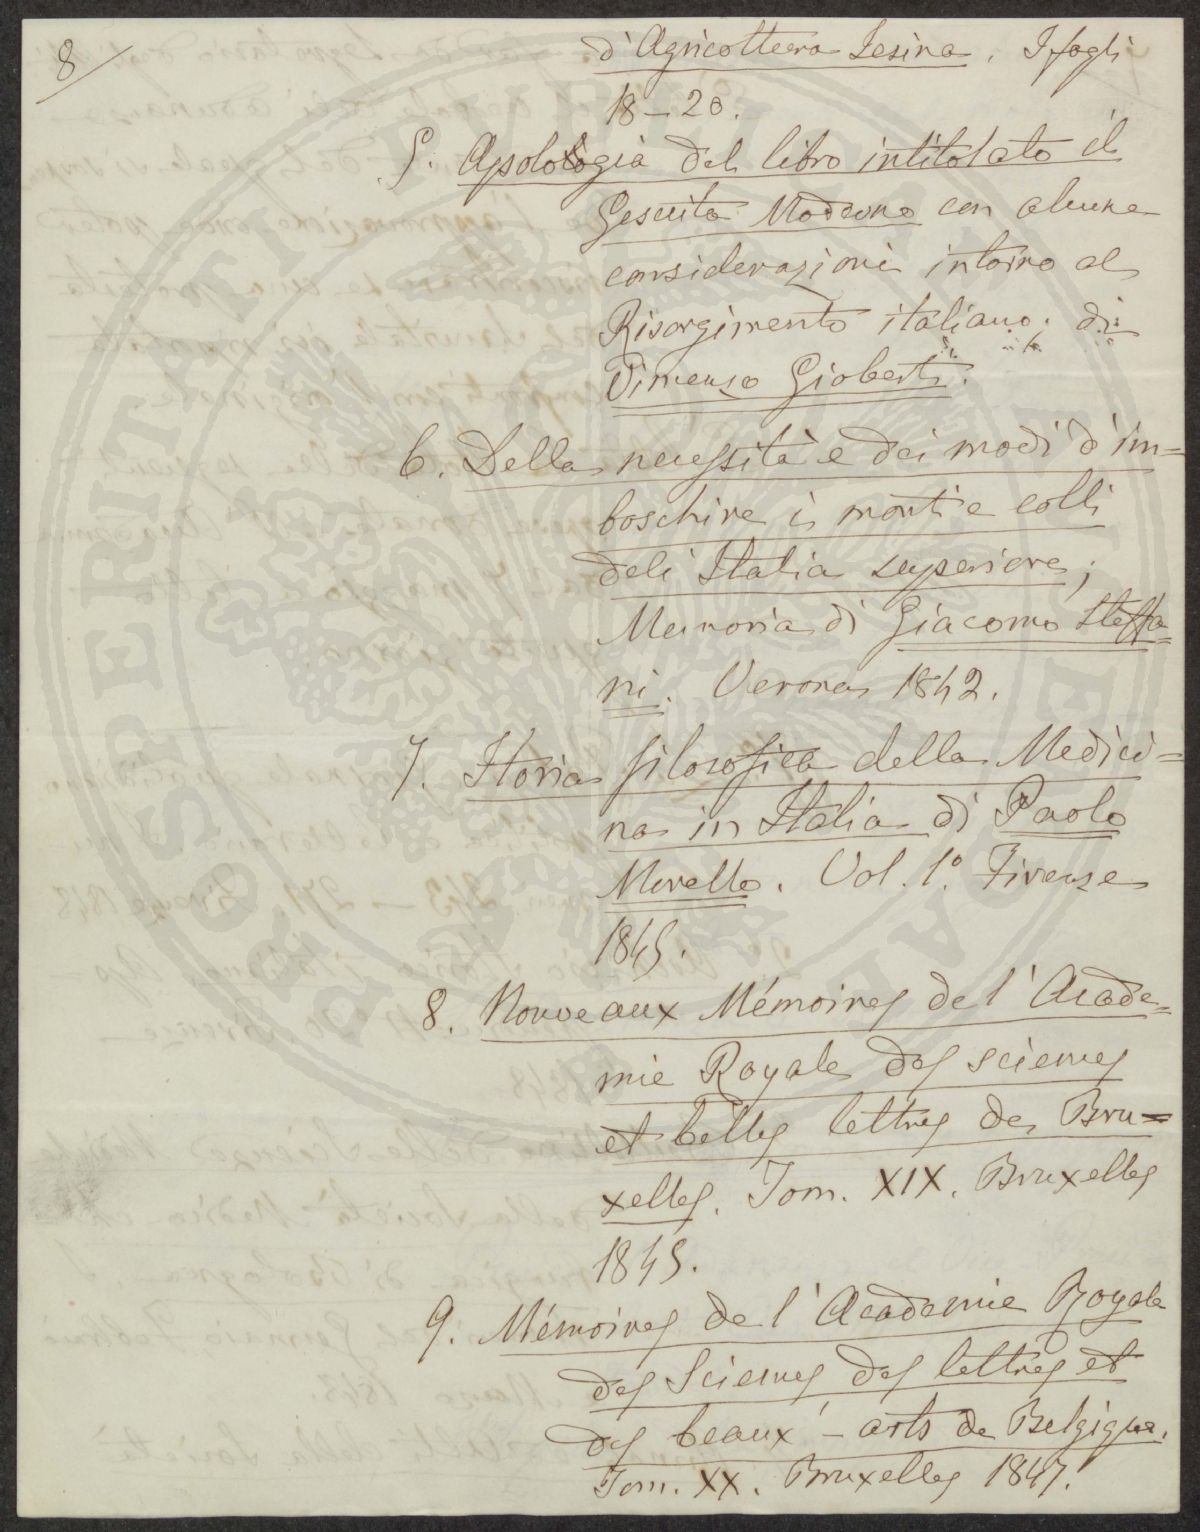 8
d'Agricoltura Iesina. I fogli
18-20.
5. Apologia del libro intitolato il
Gesuita Moderno con alcune
considerazioni intorno al
Risorgimento italiano; di
Vincenzo Gioberti.
6. Della necessità e dei modi d'im=
boschire i monti e colli
dell'Italia superiore;
Memoria di Giacomo Steffa=
ni. Verona 1842.
7. Storia filosofica della Medici=
na in Italia di Paolo
Morello. Vol. 1.° Firenze
1845.
8. Nouveaux Mémoires de l'Acade=
mie Royale des sciences
et belles lettres de Bru=
xelles. Tom. XIX. Bruxelles
1845.
9. Mémoires de l'Academie Royale
des Sciences des lettres et
des beaux-arts de Belgique.
Tom. XX. Bruxelles 1847.